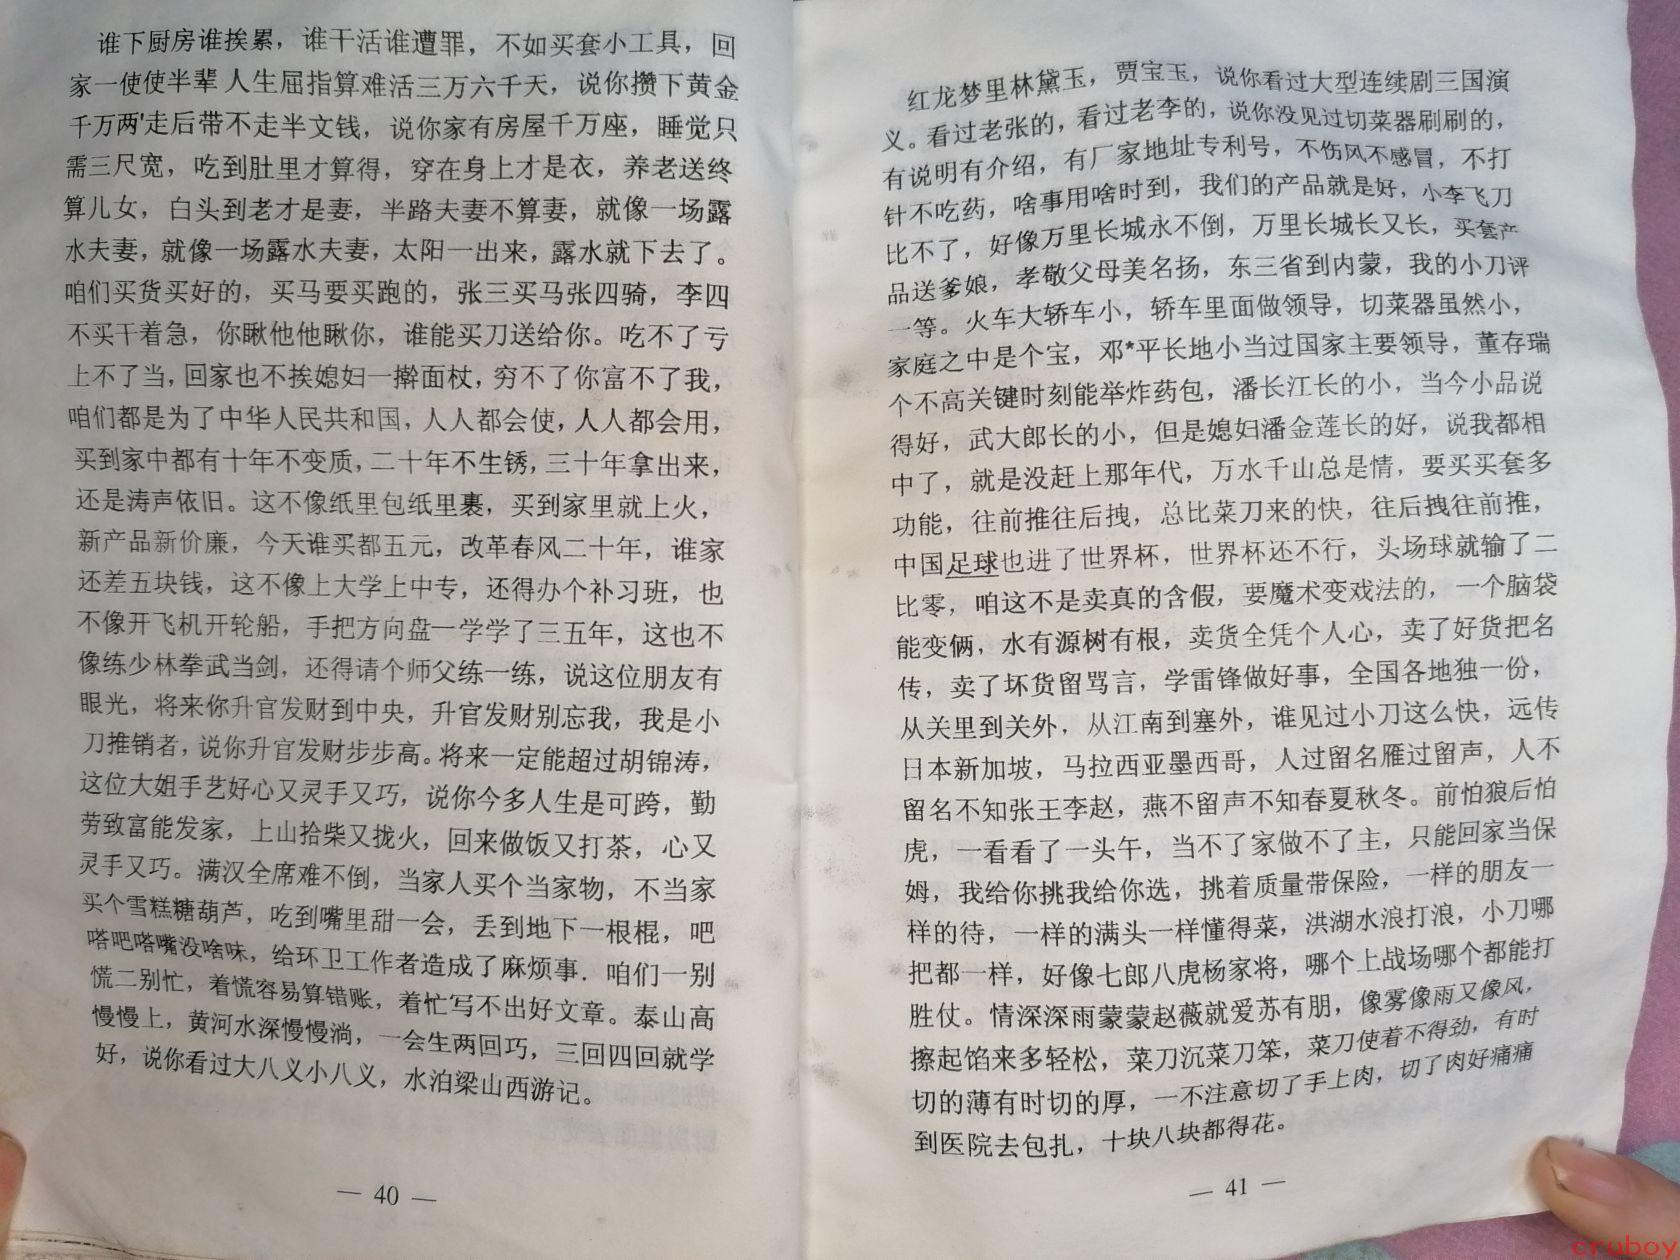 谁下厨房谁挨累，谁干活谁遭罪，不如买套小工具，回
家一使使半辈 人生屈指算难活三万六千天，说你攒下黄金
千万两'走后带不走半文钱，说你家有房屋千万座，睡觉只
需三尺宽，吃到肚里才算得，穿在身上才是衣，养老送终
算儿女，白头到老才是妻，半路夫妻不算妻，就像一场露
水夫妻，就像一场露水夫妻，太阳一出来，露水就下去了。
咱们买货买好的，买马要买跑的，张三买马张四骑，李四
不买干着急，你瞅他他瞅你，谁能买刀送给你。吃不了亏
上不了当，回家也不挨媳妇一擀面杖，穷不了你富不了我，
咱们都是为了中华人民共和国，人人都会使，人人都会用，
买到家中都有十年不变质，二十年不生锈，三十年拿出来，
还是涛声依旧。这不像纸里包纸里裹，买到家里就上火，
新产品新价廉，今天谁买都五元，改革春风二十年，谁家
还差五块钱，这不像上大学上中专，还得办个补习班，也
不像开飞机开轮船，手把方向盘一学学了三五年，这也不
像练少林拳武当剑，还得请个师父练一练，说这位朋友有
眼光，将来你升官发财到中央，升官发财别忘我，我是小
刀推销者，说你升官发财步步高。将来一定能超过胡锦涛，
这位大姐手艺好心又灵手又巧，说你今多人生是可跨，勤
劳致富能发家，上山拾柴又拢火，回来做饭又打茶，心又
灵手又巧。满汉全席难不倒，当家人买个当家物，不当家
买个雪糕糖葫芦，吃到嘴里甜一会，丢到地下一根棍，吧
嗒吧嗒嘴没啥味，给环卫工作者造成了麻烦事．咱们一别
慌二别忙，着慌容易算错账，着忙写不出好文章。泰山高
慢慢上，黄河水深慢慢淌，一会生两回巧，三回四回就学
好，说你看过大八义小八义，水泊梁山西游记。
— 40 —
红龙梦里林黛玉，贾宝玉，说你看过大型连续剧三国演
义。看过老张的，看过老李的，说你没见过切菜器刷刷的，
有说明有介绍，有厂家地址专利号，不伤风不感冒，不打
针不吃药，啥事用啥时到，我们的产品就是好，小李飞刀
比不了，好像万里长城永不倒，万里长城长又长，买套产
品送爹娘，孝敬父母美名扬，东三省到内蒙，我的小刀评
一等。火车大轿车小，轿车里面做领导，切菜器虽然小，
家庭之中是个宝，邓*平长地小当过国家主要领导，董存瑞
个不高关键时刻能举炸药包，潘长江长的小，当今小品说
得好，武大郎长的小，但是媳妇潘金莲长的好，说我都相
中了，就是没赶上那年代，万水千山总是情，要买买套多
功能，往前推往后拽，总比菜刀来的快，往后拽往前推，
中国足球也进了世界杯，世界杯还不行，头场球就输了二
比零，咱这不是卖真的含假，要魔术变戏法的，一个脑袋
能变俩，水有源树有根，卖货全凭个人心，卖了好货把名
传，卖了坏货留骂言，学雷锋做好事，全国各地独一份，
从关里到关外，从江南到塞外，谁见过小刀这么快，远传
日本新加坡，马拉西亚墨西哥，人过留名雁过留声，人不
留名不知张王李赵，燕不留声不知春夏秋冬。前怕狼后怕
虎，一看看了一头午，当不了家做不了主，只能回家当保
姆，我给你挑我给你选，挑着质量带保险，一样的朋友一
样的待，一样的满头一样懂得菜，洪湖水浪打浪，小刀哪
把都一样，好像七郎八虎杨家将，哪个上战场哪个都能打
胜仗。情深深雨蒙蒙赵薇就爱苏有朋，像雾像雨又像风，
擦起馅来多轻松，菜刀沉菜刀笨，菜刀使着不得劲，有时
切的薄有时切的厚，一不注意切了手上肉，切了肉好痛痛
到医院去包扎，十块八块都得花。
— 41 —
cruboy